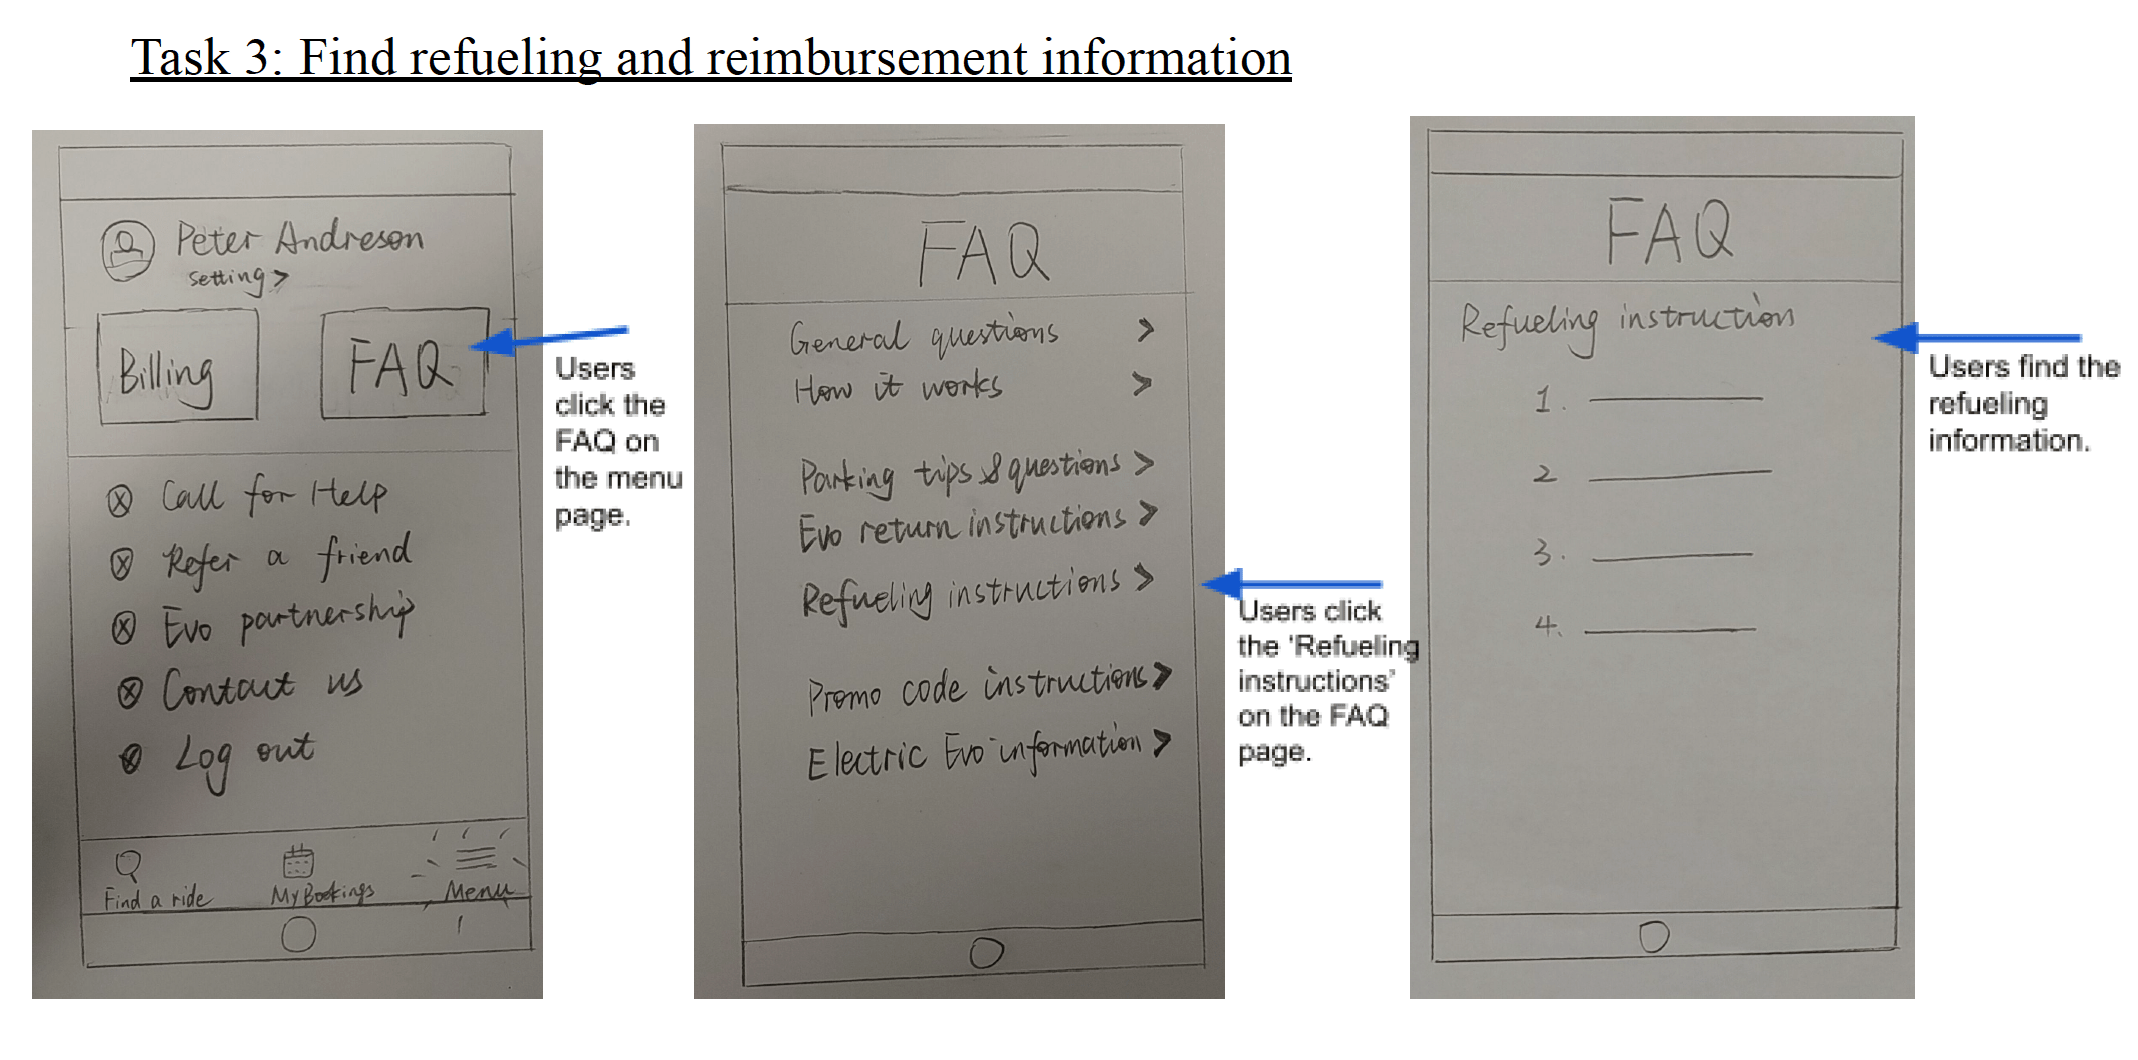 Task 3: Find refueling and reimbursement information
Peter Andreson
setting >
Billing
FAQ
Call for Help
Refer a friend
Evo partnership
Contact us
Log out
Find a ride
My Bookings
Menu
Users
click the
FAQ on
the menu
page.
FAQ
General questions >
How it works >
Parking tips & questions >
Evo return instructions >
Refueling instructions >
Promo code instructions >
Electric Evo information >
Users click
the 'Refueling
instructions'
on the FAQ
page.
FAQ
Refueling instruction
1.
2
3.
4.
Users find the
refueling
information.